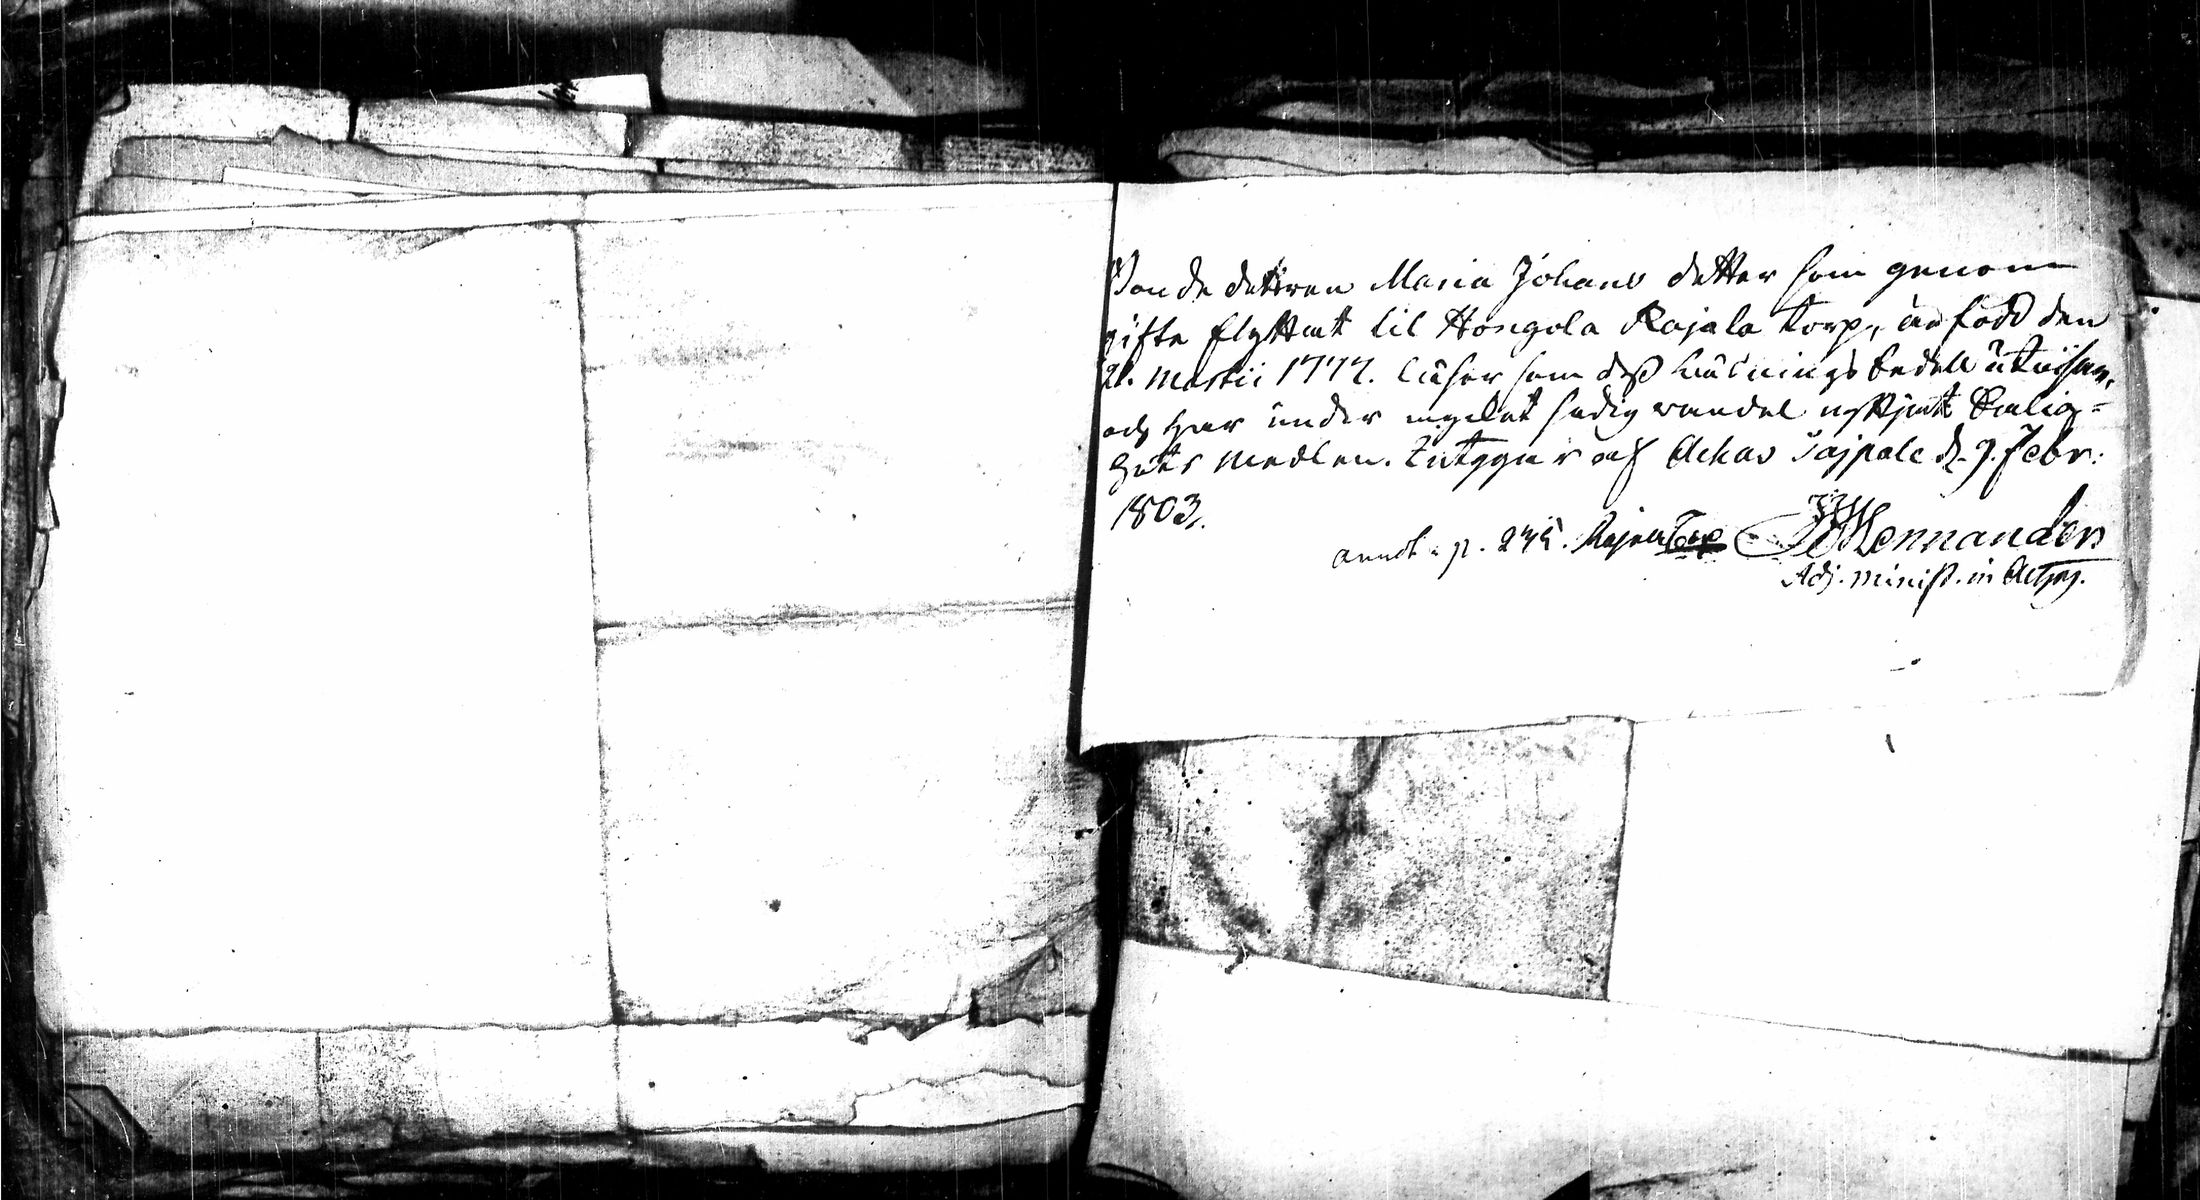 Bonde dottren Maria Johans dotter som genom
gifte flyttat til Hongola Rajala torp, är född den
21. Martii 1777. läser som dess hwälnings sedell utwisar,
och har under mycket sedig wandel nyttjat Salig-
hets medlen. Intygar af Ackas Sajpale d. 9. Febr:
1803.
annot. p. 275. Rajala Torp Hennander
Adj. minist. in Ackas.